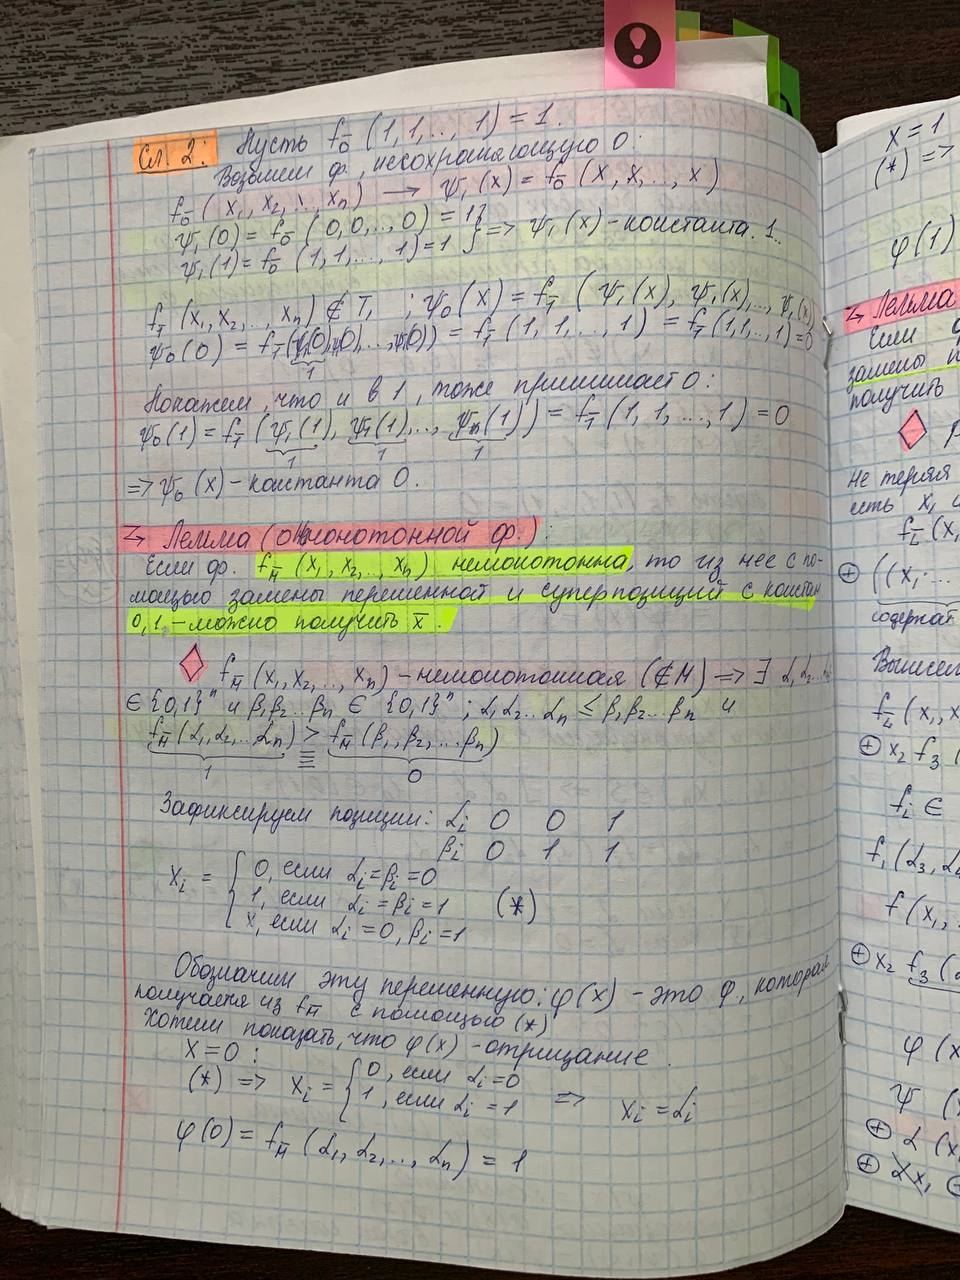 Сл. 2: Пусть f₀̄ (1,1,..,1) = 1.
Возьмем ф., несохраняющую 0:
f₀̄ (x₁, x₂, ..., xₙ) → ψ₁(x) = f₀̄ (x, x,..., x)
ψ₁(0) = f₀̄ (0,0,..,0) = 1 }
ψ₁(1) = f₀̄ (1,1,..., 1) = 1 } => ψ₁(x) - константа 1.
f₁̄ (x₁, x₂,..., xₙ) ∉ T₁ ; ψ₀(x) = f₁̄ (ψ₁(x), ψ₁(x),..., ψ₁(x)
ψ₀(0) = f₁̄(ψ₁(0),ψ₁(0),...,ψ₁(0)) = f₁̄ (1,1,...,1) = f₁̄ (1,1,..,1) = 0
1
Покажем, что и в 1, тоже принимает 0:
ψ₀(1) = f₁̄ (ψ₁(1), ψ₁(1),.., ψₙ(1)) = f₁̄ (1, 1, ..., 1) = 0
1 1 1
=> ψ₀(x) - константа 0.
Лемма (о немонотонной ф.):
Если ф. f_M̄ (x₁, x₂,.., xₙ) немонотонна, то из нее с по-
мощью замены переменной и суперпозиций с констан
0,1 - можно получить x̄.
f_M̄ (x₁, x₂,..., xₙ) - немонотонная (∉ M) => ∃ α₁α₂...
∈ {0,1}ⁿ и β₁β₂...βₙ ∈ {0,1}ⁿ ; α₁α₂...αₙ ≤ β₁β₂...βₙ и
f_M̄(α₁,α₂,...αₙ) > f_M̄(β₁,β₂,...βₙ)
1 ≡ 0
Зафиксируем позиции: αᵢ 0 0 1
βᵢ 0 1 1
xᵢ = { 0, если αᵢ=βᵢ=0
1, если αᵢ=βᵢ=1 (*)
x, если αᵢ=0, βᵢ=1
Обозначим эту переменную: φ(x) - это φ, которая
получается из f_M̄ с помощью (*)
Хотим показать, что φ(x) - отрицание.
x=0:
(*) => xᵢ = { 0, если αᵢ=0
1, если αᵢ=1 => xᵢ = αᵢ
φ(0) = f_M̄ (α₁, α₂,.., αₙ) = 1
x = 1
(*) =>
φ(1)
Лемма
Если
замены
получить
Не теряя
есть x₁
⊕ ((x₁...
содержат
Вынесем
⊕ x₂ f₃ (
fᵢ ∈
f (x₁,
⊕ x₂ f₃ (
φ (x
ψ (
⊕ α (x
⊕ αx₁ ⊕